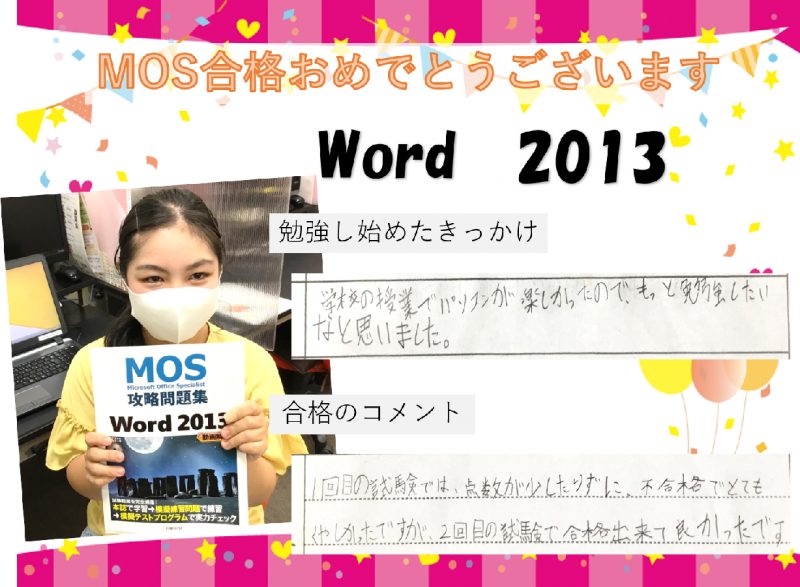 MOS合格おめでとうございます
Word 2013
勉強し始めたきっかけ
学校の授業でパソコンが楽しかったので、もっと勉強したい
なと思いました。
MOS
Microsoft Office Specialist
攻略問題集
Word 2013
本誌で学習→模擬練習問題で練習
→模擬テストプログラムで実力チェック
合格のコメント
1回目の試験では、点数が少したりずに、不合格でとても
くやしかったですが、2回目の試験で合格出来て良かったです